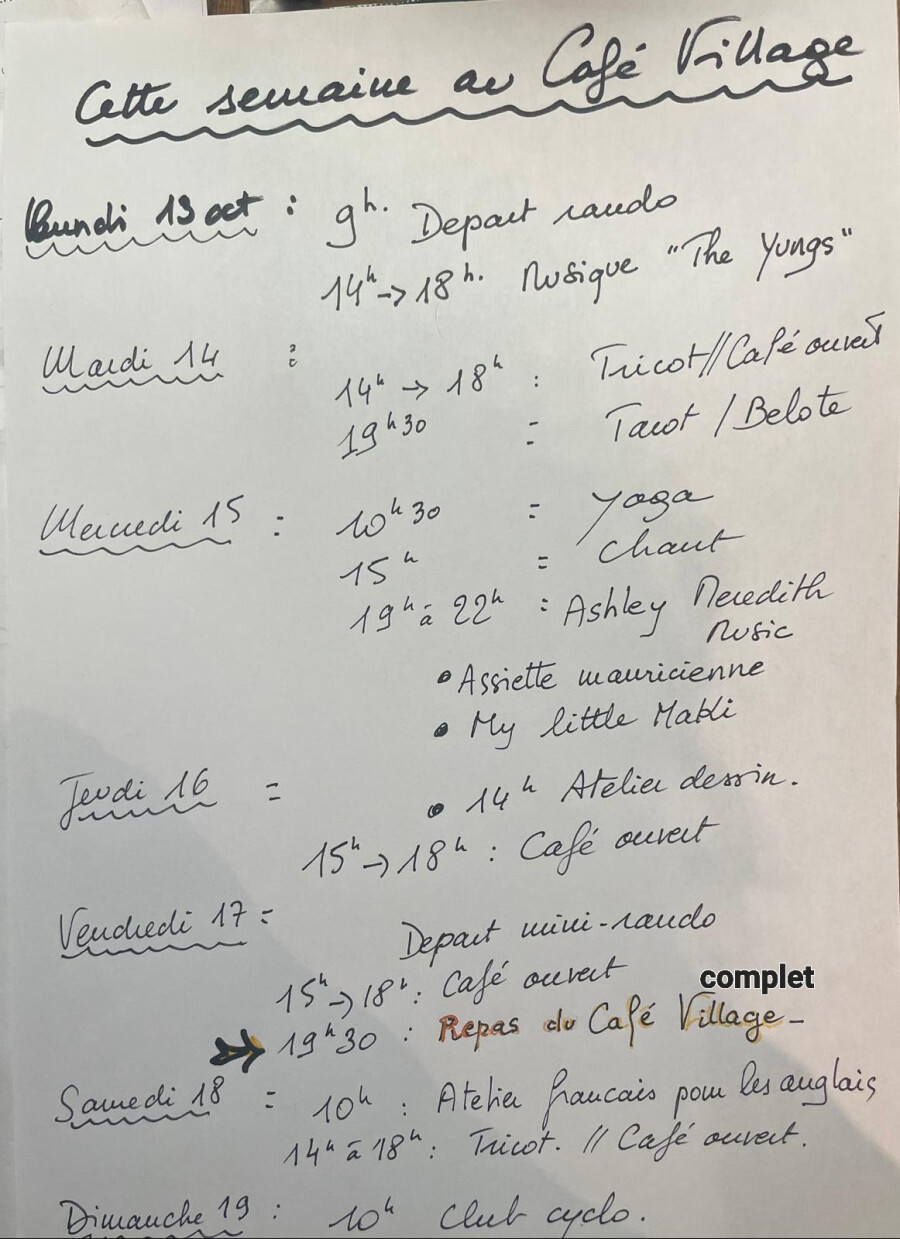 Cette semaine au Café Village
Lundi 13 oct : 9h. Depart rando
14h → 18h. Musique "The Yungs"
Mardi 14 :
14h → 18h : Tricot // Café ouvert
19h30 = Tarot / Belote
Mercredi 15 : 10h30 = Yoga
15h = Chant
19h à 22h : Ashley Meredith
Music
• Assiette mauricienne
• My little Makli
Jeudi 16 = • 14h Atelier dessin.
15h → 18h : Café ouvert
Vendredi 17 = Depart mini-rando
15h → 18h : Café ouvert
complet
19h30 : Repas du Café Village -
Samedi 18 = 10h : Atelier francais pour les anglais
14h à 18h : Tricot. // Café ouvert.
Dimanche 19 : 10h Club cyclo.